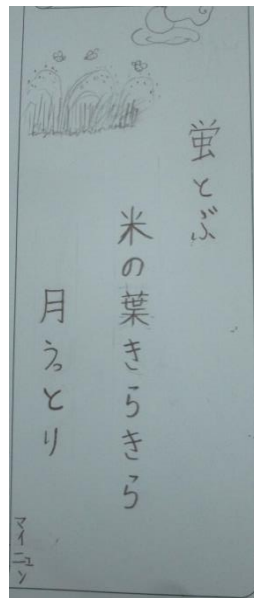 蛍とぶ
米の葉きらきら
月うっとり
マイニュン